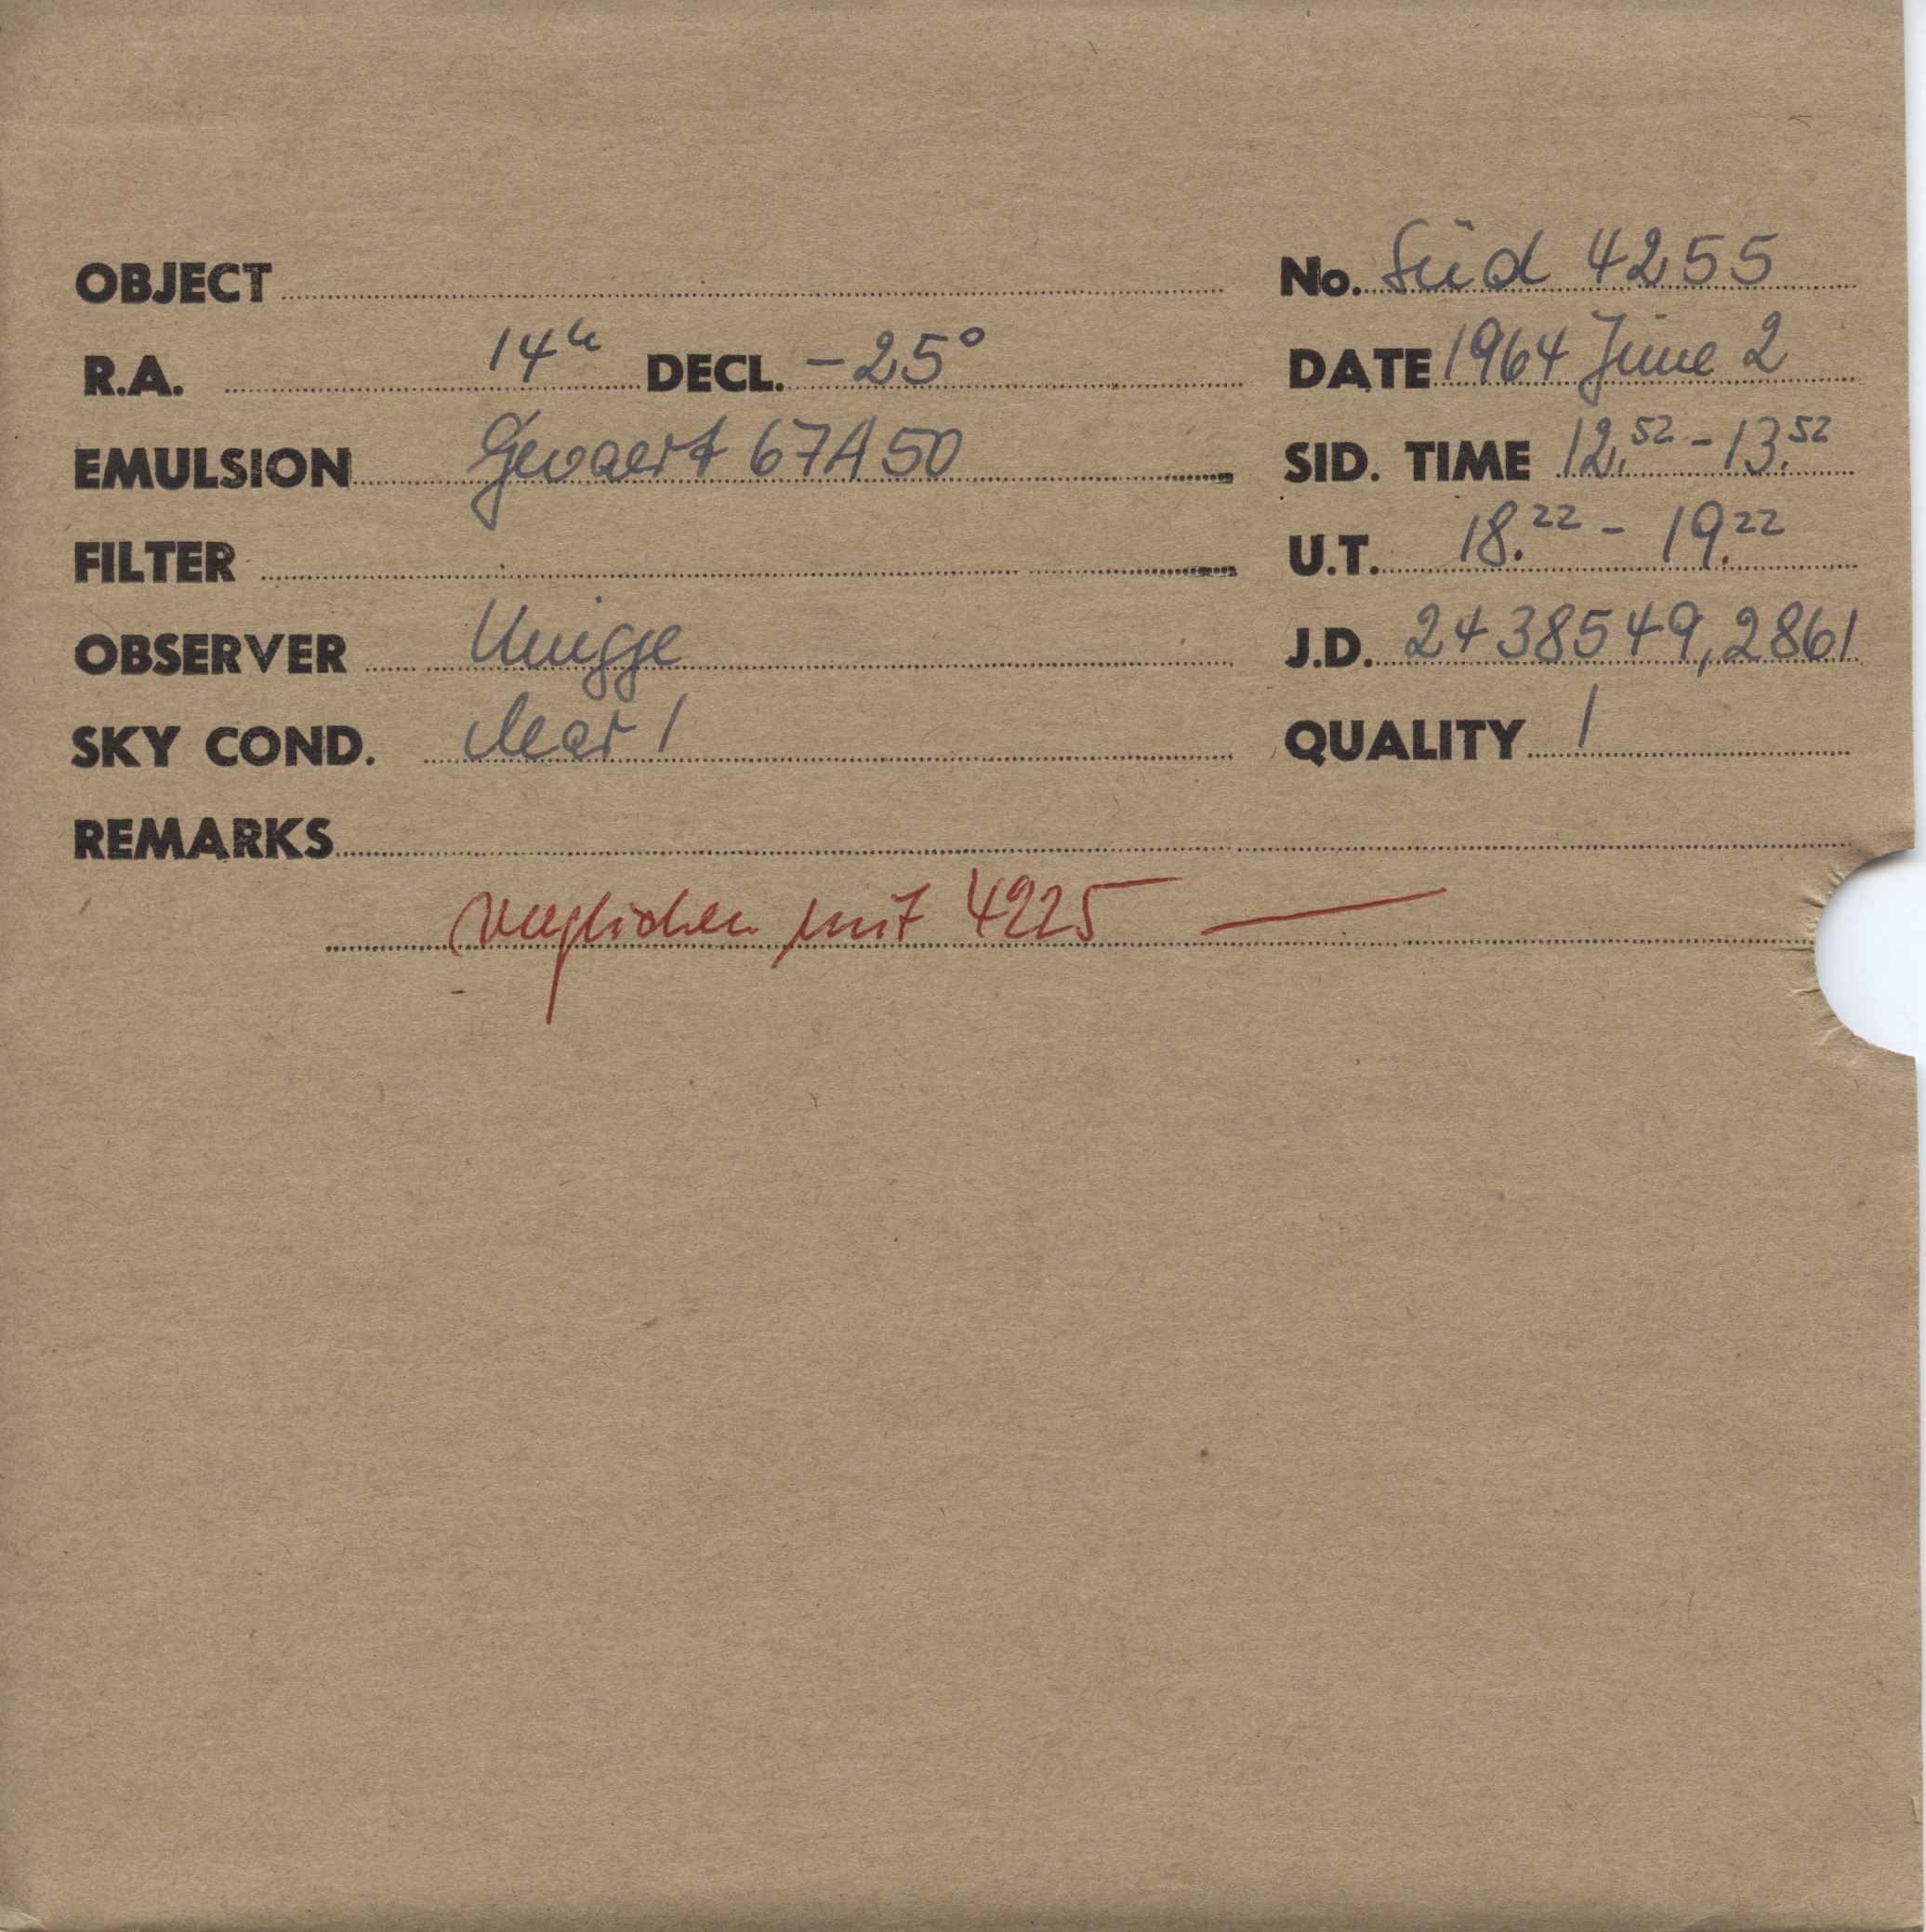 OBJECT No. Süd 4255
R.A. 14h DECL. -25°  DATE 1964 June 2
EMULSION Gevaert 67A50 SID. TIME 12.52 - 13.52
FILTER U.T. 18.22 - 19.22
OBSERVER Knigge J.D. 2438549,2861
SKY COND. clear 1 QUALITY 1
REMARKS
verglichen mit 4225 —